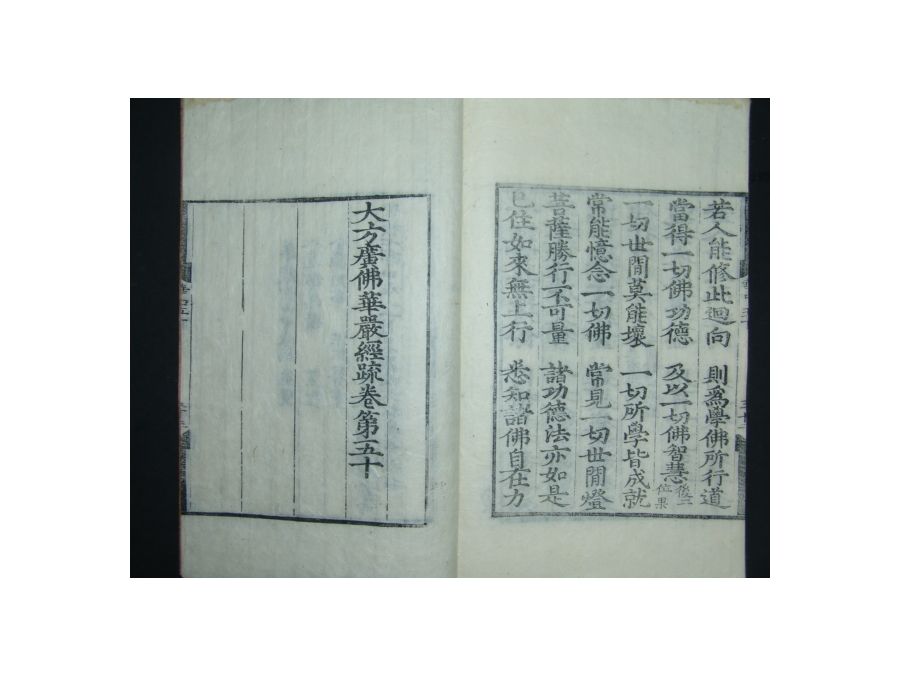 若人能修此迴向　則爲學佛所行道
當得一切佛功德　及以一切佛智慧後一位果
一切世間莫能壞　一切所學皆成就
常能憶念一切佛　常見一切世間燈
菩薩勝行不可量　諸功德法亦如是
已住如來無上行　悉知諸佛自在力
大方廣佛華嚴經䟽卷第五十